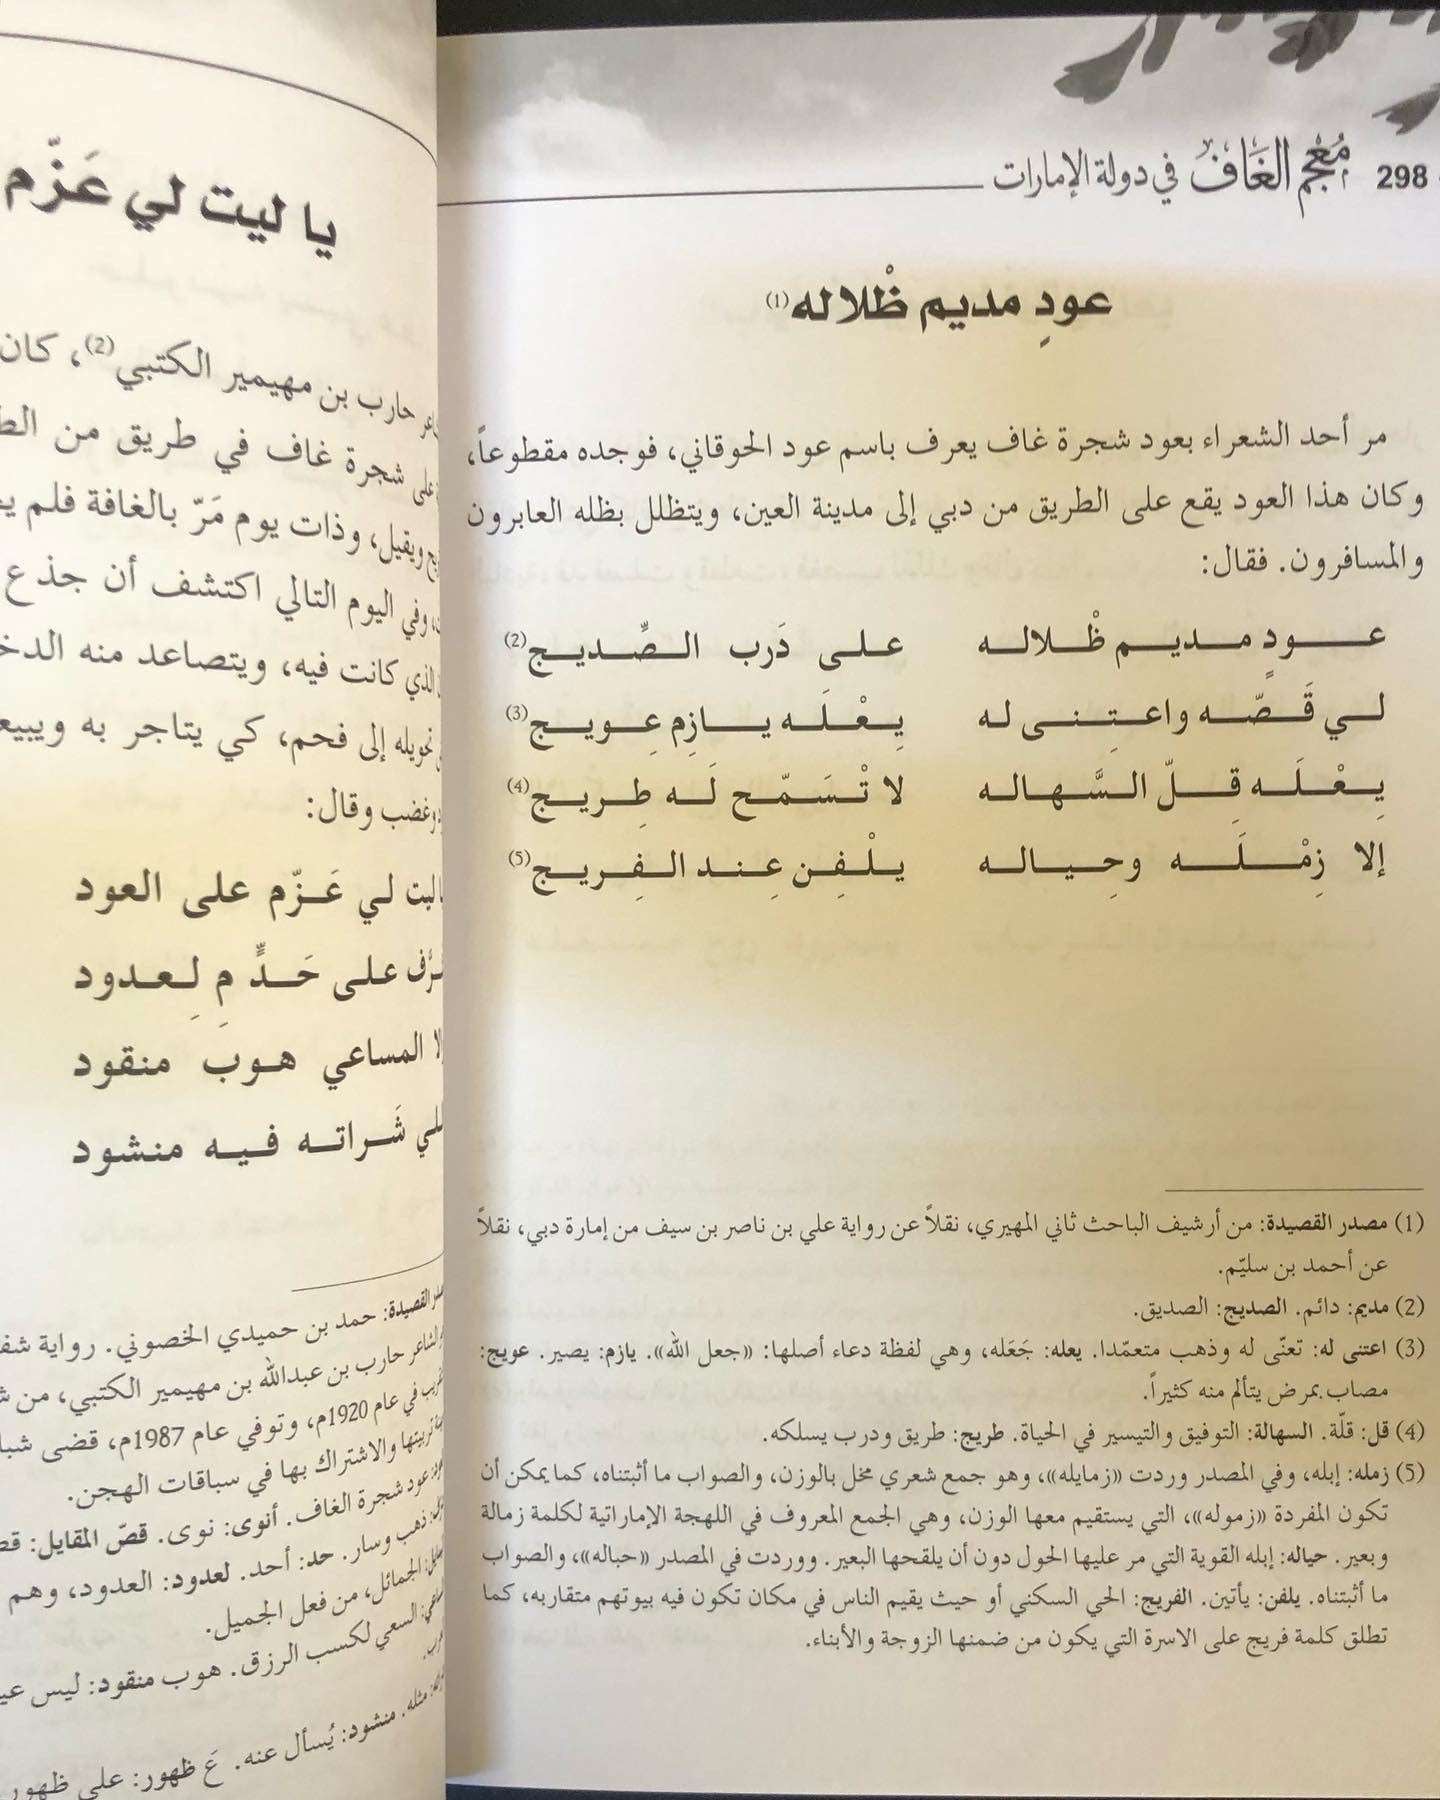 298 مُعجم الغَاف في دولة الإمارات
عودِ مديم ظْلاله(1)
مر أحد الشعراء بعود شجرة غاف يعرف باسم عود الحوقاني، فوجده مقطوعاً،
وكان هذا العود يقع على الطريق من دبي إلى مدينة العين، ويتظلل بظله العابرون
والمسافرون. فقال:
عـودٍ مـديـم ظْـلالـه علـى دَرب الـصِّـديـج(2)
لـي قَـصّـه واعـتِـنـى له يِـعْـلَـه يـازِم عِـويـج(3)
يِـعْـلَـه قِـلّ السَّـهـالـه لا تْـسَـمّـح لَـه طِـريـج(4)
إلا زِمْـلَـه وحِـيـالـه يـلْـفِـن عِـنـد الـفِـريـج(5)
(1) مصدر القصيدة: من أرشيف الباحث ثاني المهيري، نقلاً عن رواية علي بن ناصر بن سيف من إمارة دبي، نقلاً
عن أحمد بن سليّم.
(2) مديم: دائم. الصديج: الصديق.
(3) اعتنى له: تعنّى له وذهب متعمّدا. يعله: جَعَله، وهي لفظة دعاء أصلها: «جعل الله». يازم: يصير. عويج:
مصاب بمرض يتألم منه كثيراً.
(4) قل: قلّة. السهالة: التوفيق والتيسير في الحياة. طريج: طريق ودرب يسلكه.
(5) زمله: إبله، وفي المصدر وردت «زمايله»، وهو جمع شعري مخل بالوزن، والصواب ما أثبتناه، كما يمكن أن
تكون المفردة «زموله»، التي يستقيم معها الوزن، وهي الجمع المعروف في اللهجة الإماراتية لكلمة زمالة
وبعير. حياله: إبله القوية التي مر عليها الحول دون أن يلقحها البعير. ووردت في المصدر «حباله»، والصواب
ما أثبتناه. يلفن: يأتين. الفريج: الحي السكني أو حيث يقيم الناس في مكان تكون فيه بيوتهم متقاربه، كما
تطلق كلمة فريج على الاسرة التي يكون من ضمنها الزوجة والأبناء.
يا ليت لي عَزّم
حارب بن مهيمير الكتبي(2)، كان
على شجرة غاف في طريق من
ويقيل، وذات يوم مَرّ بالغافة فلم
وفي اليوم التالي اكتشف أن جذع
الذي كانت فيه، ويتصاعد منه
تحويله إلى فحم، كي يتاجر به
وغضب وقال:
ليت لي عَـزّم على العود
على حَـدٍّ مِ لِـعـدود
المساعي هـوب منقود
شَـراتـه فيـه منشود
القصيدة: حمد بن حميدي الخصوني. رواية
الشاعر حارب بن عبدالله بن مهيمير الكتبي، من
في عام 1920م، وتوفي عام 1987م، قضى
تربيتها والاشتراك بها في سباقات الهجن.
عود شجرة الغاف. أنوى: نوى. قصّ المقايل:
ذهب وسار. حد: أحد. لعدود: العدود، وهم
الجمائل، من فعل الجميل.
السعي لكسب الرزق. هوب منقود: ليس
مثله. منشود: يُسأل عنه. عَ ظهور: على